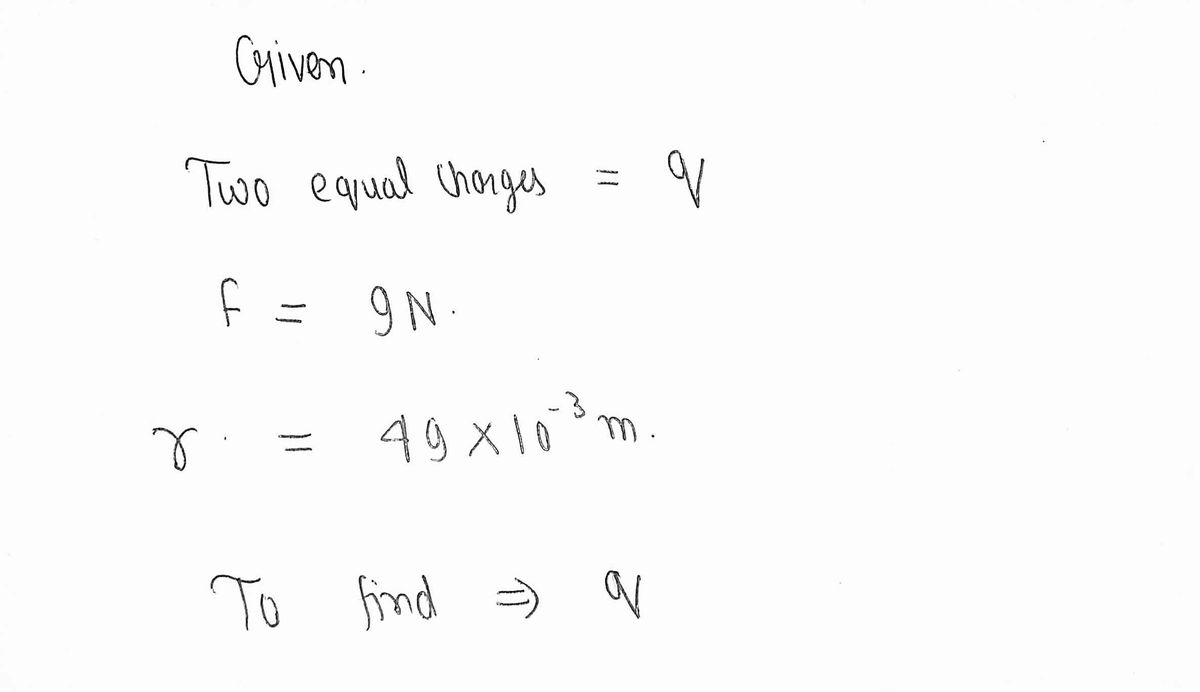 Given.
Two equal charges = q
f = 9 N.
r = 49 x 10⁻³ m.
To find ⇒ q